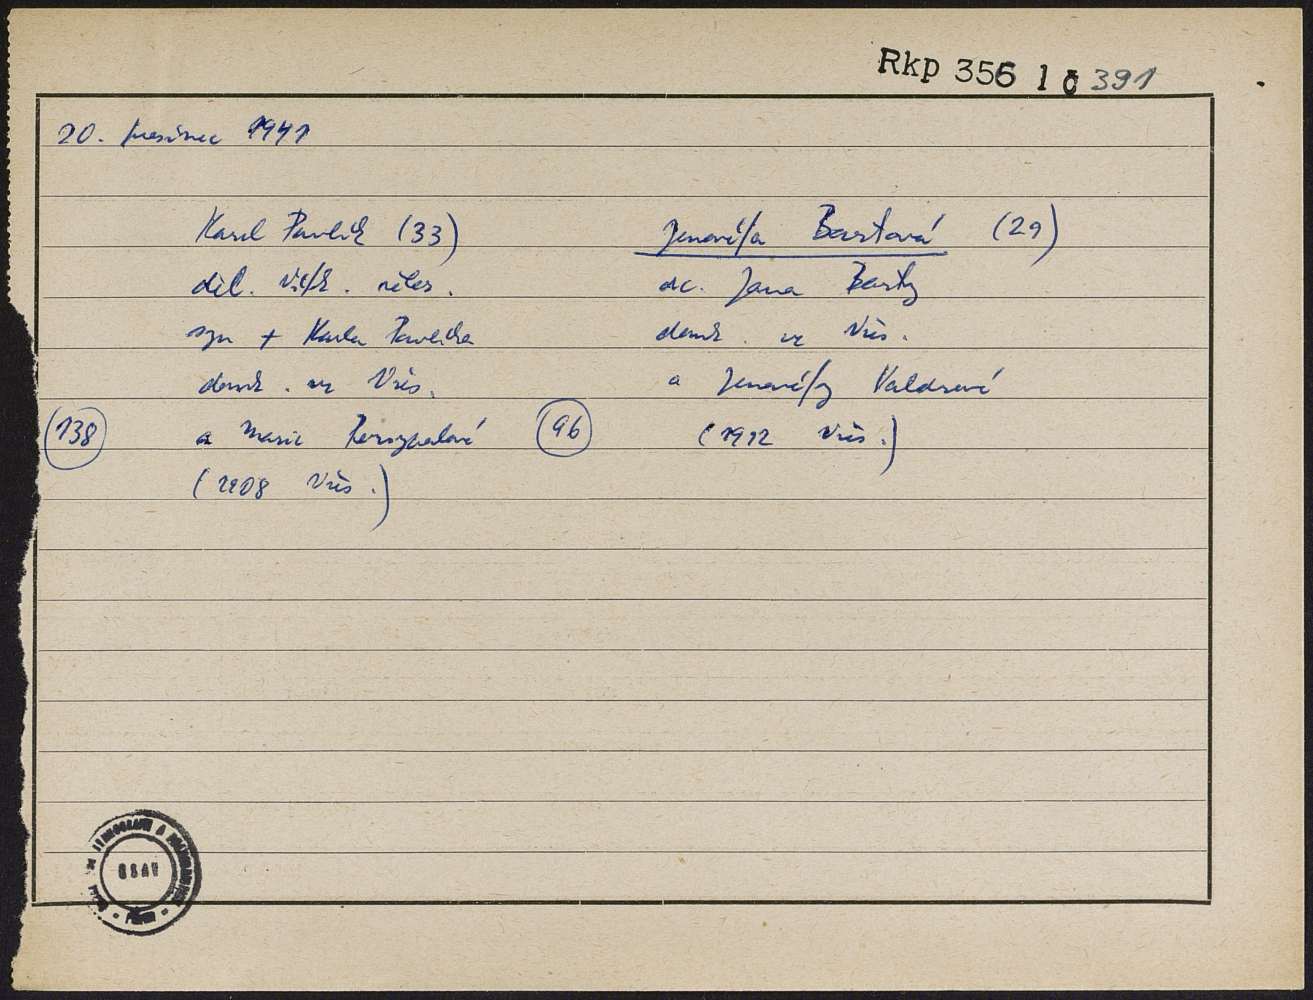 Rkp 356 1 č 391
20. prosinec 1941
Karel Pavlík (33)
děl. . .
syn + Karla Pavlíka
domk. ve Vřes.
138
a Marie
(1908 Vřes.)
Jenovéfa Bartová (29)
dc. Jana Barty
domk. ve Vřes.
a Jenovéfy Valdsové
96
(1912 Vřes.)
ČSAV